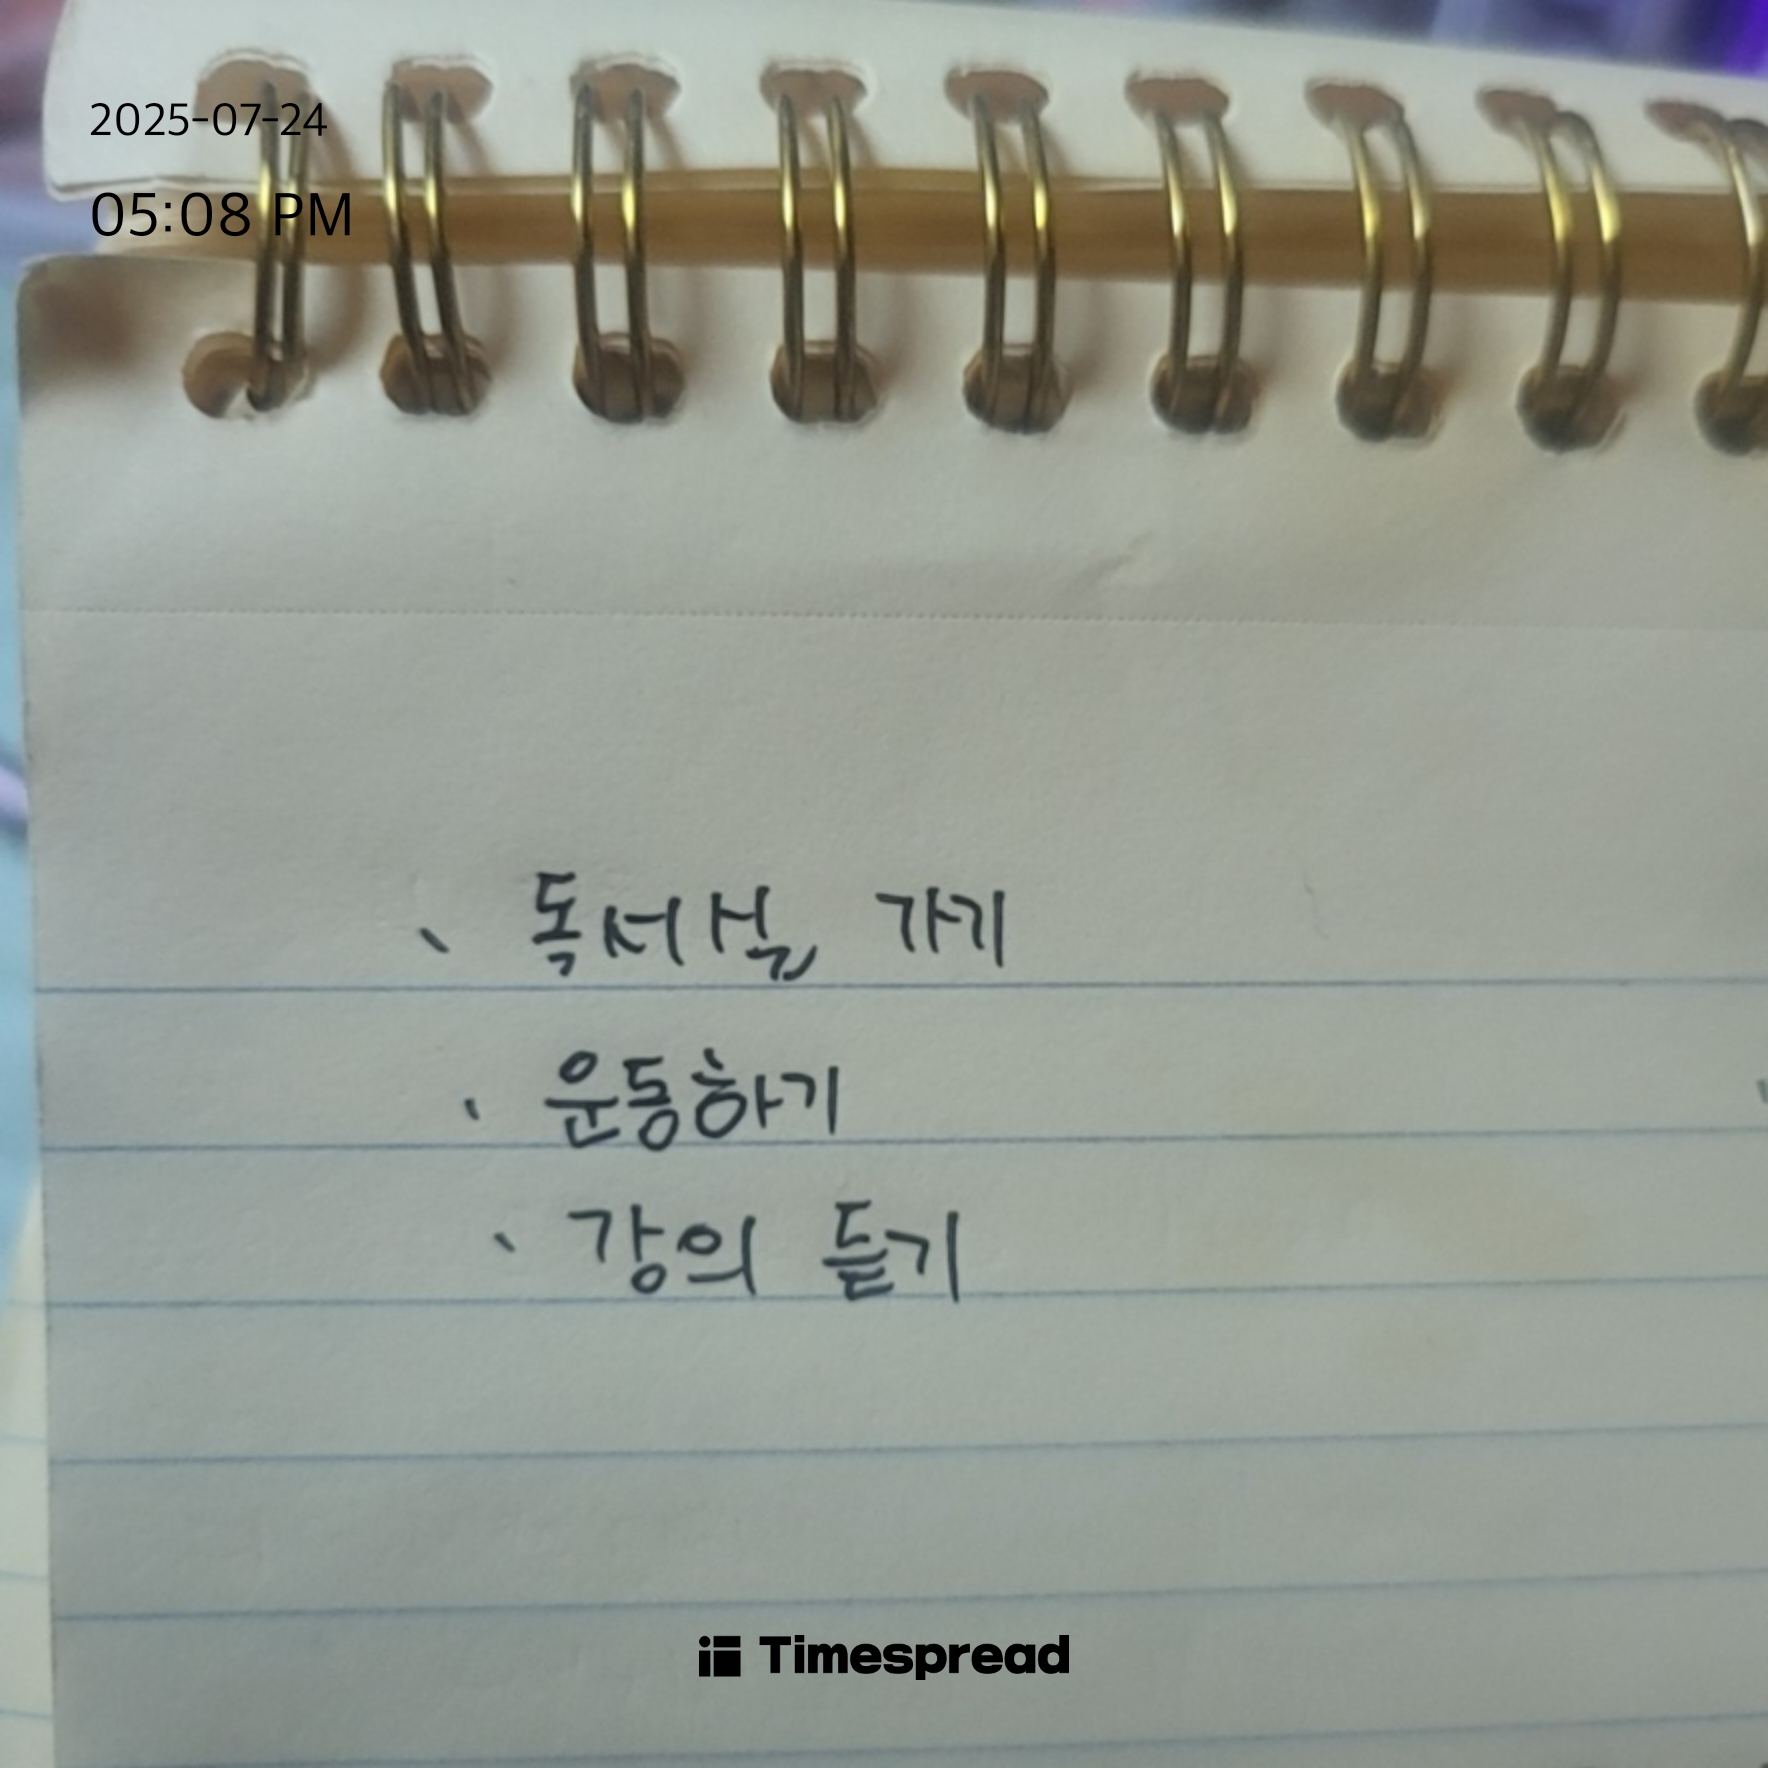 2025-07-24
05:08 PM
、 독서실 가기
· 운동하기
、 강의 듣기
Timespread